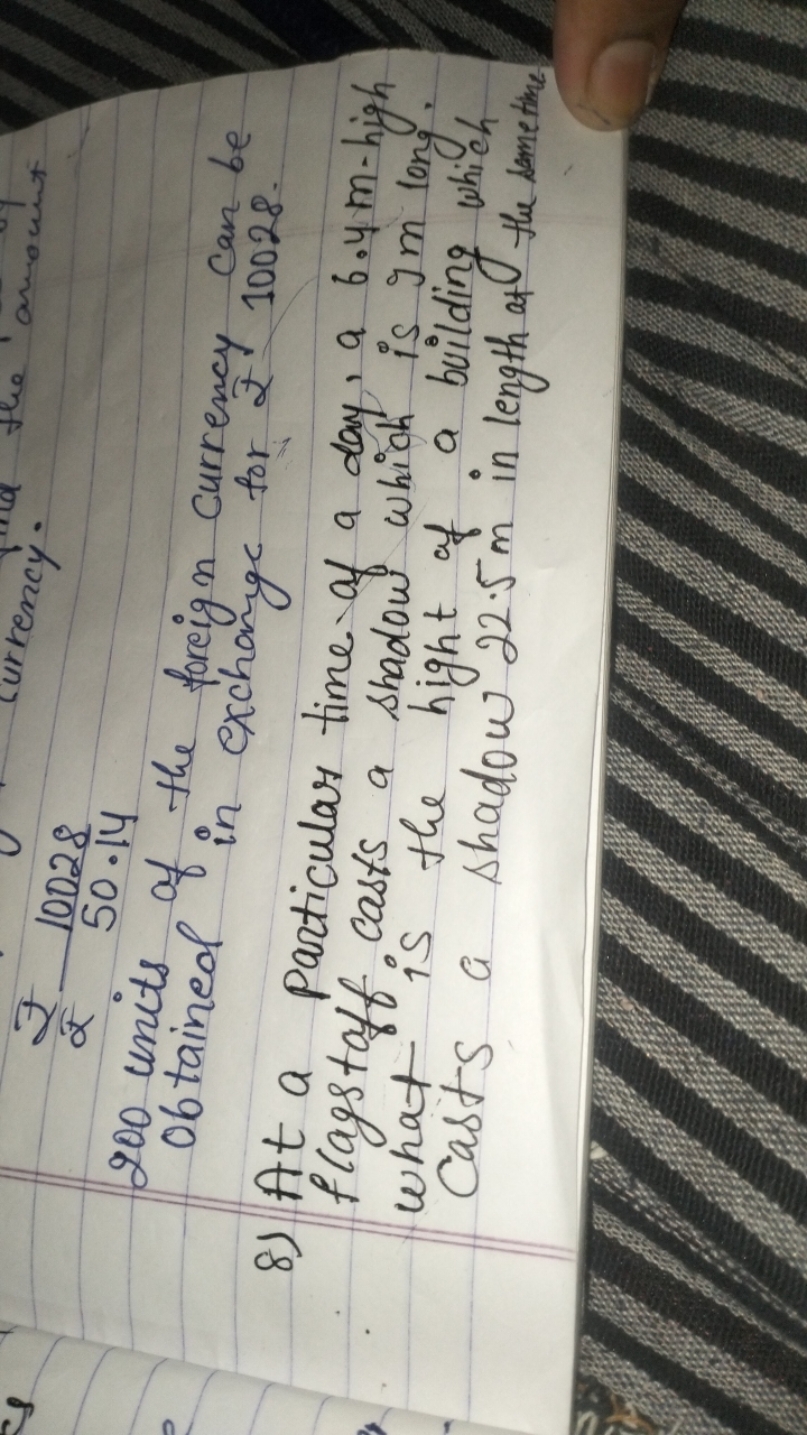 the
amount
currency.
₹ 10028
₹ 50.14
200 units of the foreign currency can be
obtained in exchange for ₹ 10028.
8) At a particular time of a day, a 6.4 m-high
flagstaff casts a shadow which is 9m long.
what is the hight of a building which
casts a shadow 22.5m in length at the same time